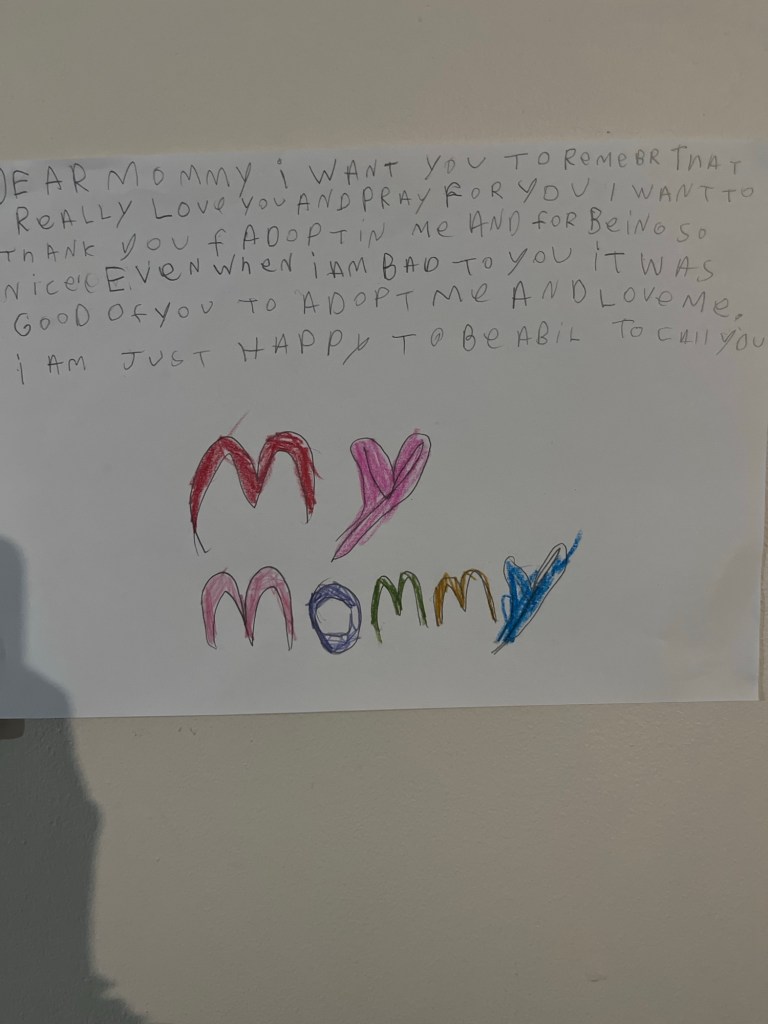 DEAR MOMMY i WANT YOU TO ReMeBR THAT
ReALLY LOVe YOU AND PRAY FOR YOU I WANT TO
THANK YOU f ADOPTIN Me AND for BeiNG SO
Nice EVEN WheN i AM BAD TO YOU iT WAS
GOOD Of YOU TO ADOPT Me AND LOVe Me.
i AM JUST HAPPY TO Be ABIL TO CAll YOU
My
Mommy